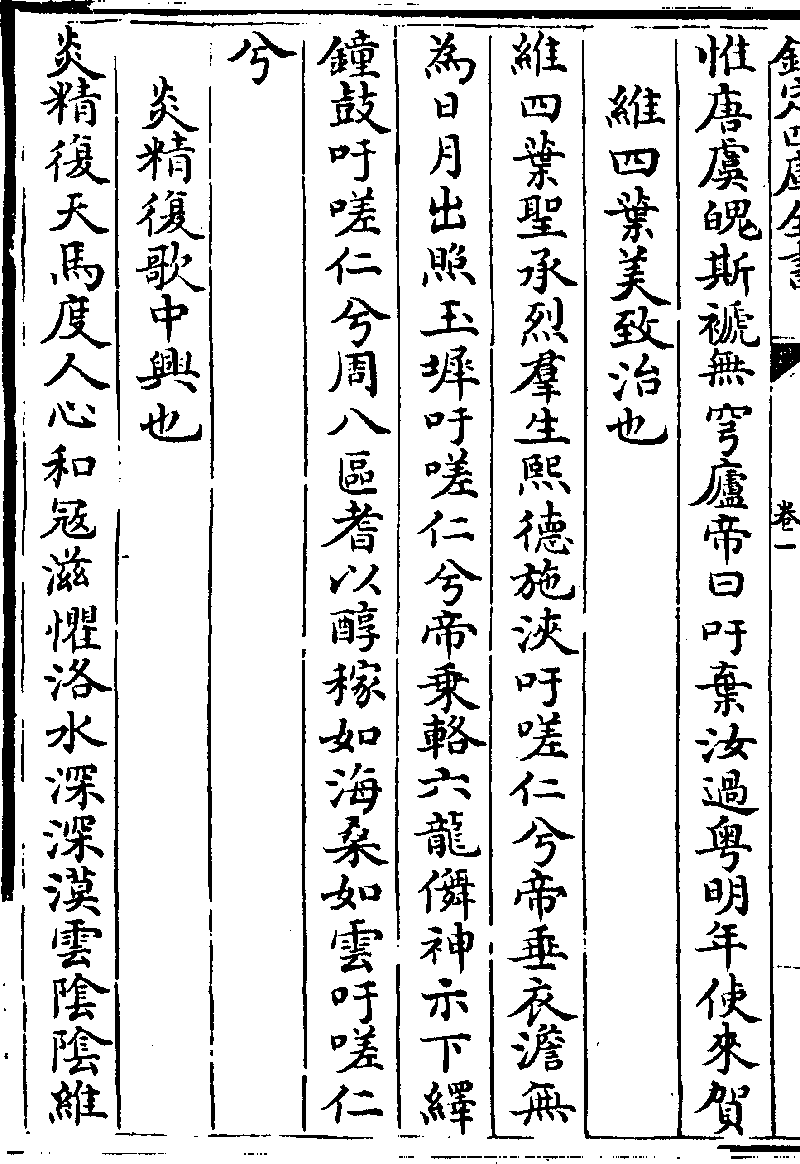 欽定四庫全書
卷一
惟唐虞魄斯褫無穹廬帝曰吁棄汝過粤明年使來賀
維四葉美致治也
維四葉聖承烈羣生熙德施浹吁嗟仁兮帝垂衣澹無
為日月出照玉墀吁嗟仁兮帝乗輅六龍儛神示下繹
鐘鼓吁嗟仁兮周八區耆以醇稼如海桑如雲吁嗟仁
兮
炎精復歌中興也
炎精復天馬度人心和冦滋懼洛水深深漠雲陰陰維